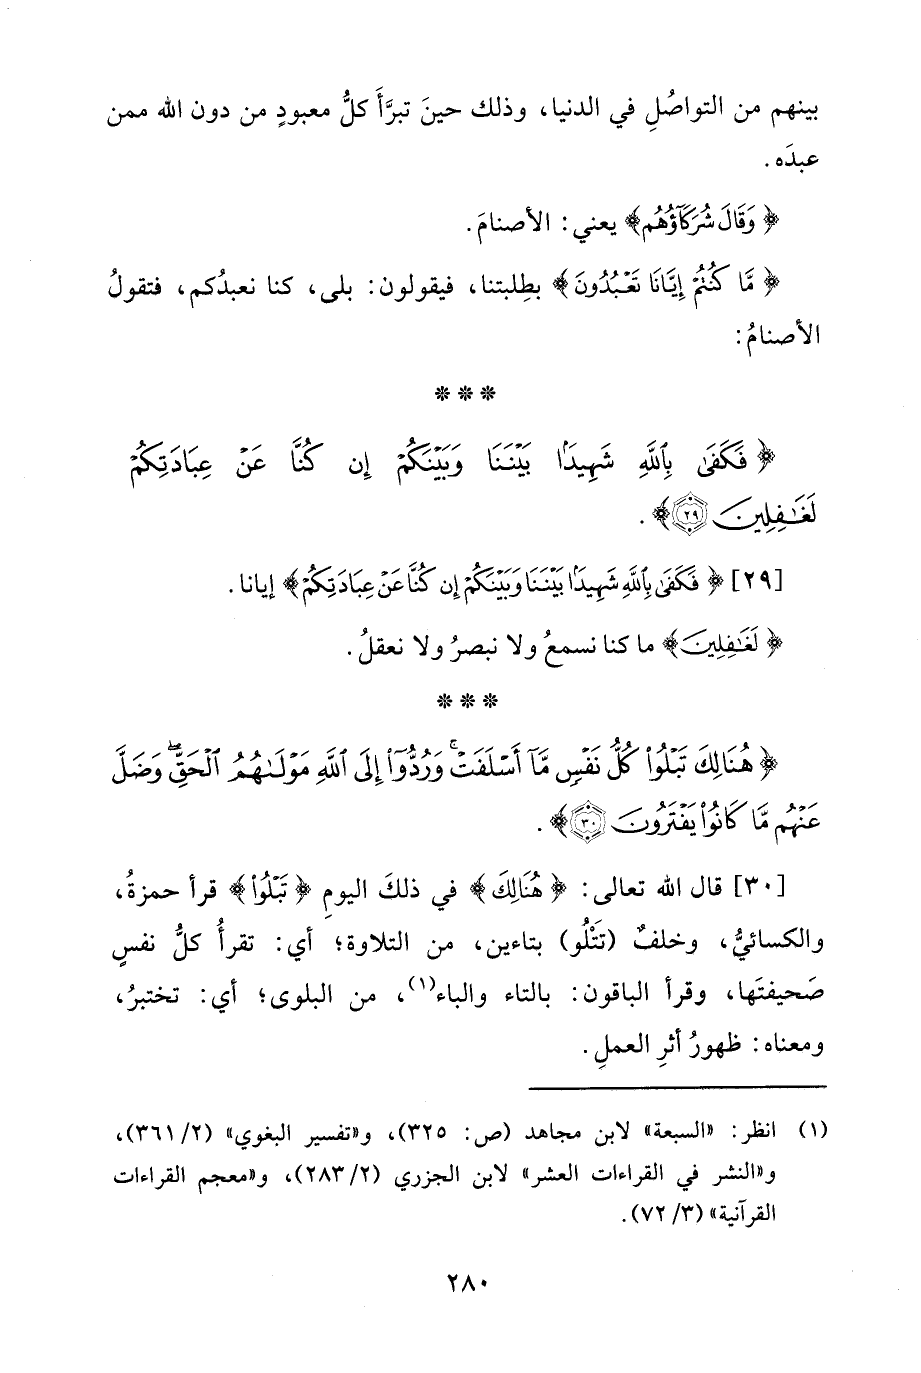 بينهم من التواصُلِ في الدنيا، وذلك حينَ تبرَّأَ كلُّ معبودٍ من دون الله ممن
عبدَه.
﴿ وَقَالَ شُرَكَآؤُهُم﴾ يعني: الأصنامَ.
﴿ مَّا كُنتُمْ إِيَّانَا تَعْبُدُونَ﴾ بطِلبتنا، فيقولون: بلى، كنا نعبدُكم، فتقولُ
الأصنامُ:
* * *
﴿ فَكَفَىٰ بِٱللَّهِ شَهِيدًۢا بَيْنَنَا وَبَيْنَكُمْ إِن كُنَّا عَنْ عِبَادَتِكُمْ
لَغَٰفِلِينَ ٢٩﴾.
[٢٩] ﴿ فَكَفَىٰ بِٱللَّهِ شَهِيدًۢا بَيْنَنَا وَبَيْنَكُمْ إِن كُنَّا عَنْ عِبَادَتِكُمْ﴾ إيانا.
﴿ لَغَٰفِلِينَ﴾ ما كنا نسمعُ ولا نبصرُ ولا نعقلُ.
* * *
﴿ هُنَالِكَ تَبْلُوا۟ كُلُّ نَفْسٍ مَّآ أَسْلَفَتْ ۚ وَرُدُّوٓا۟ إِلَى ٱللَّهِ مَوْلَىٰهُمُ ٱلْحَقِّ ۖ وَضَلَّ
عَنْهُم مَّا كَانُوا۟ يَفْتَرُونَ ٣٠﴾.
[٣٠] قال الله تعالى: ﴿ هُنَالِكَ﴾ في ذلكَ اليومِ ﴿ تَبْلُوا۟﴾ قرأ حمزةُ،
والكسائيُّ، وخلفٌ (تَتْلُو) بتاءين، من التلاوة؛ أي: تقرأُ كلُّ نفسٍ
صَحيفتَها، وقرأ الباقون: بالتاء والباء(١)، من البلوى؛ أي: تختبرُ،
ومعناه: ظهورُ أثرِ العملِ.
(١) انظر: «السبعة» لابن مجاهد (ص: ٣٢٥)، و«تفسير البغوي» (٢/ ٣٦١)،
و«النشر في القراءات العشر» لابن الجزري (٢/ ٢٨٣)، و«معجم القراءات
القرآنية» (٣/ ٧٢).
٢٨٠